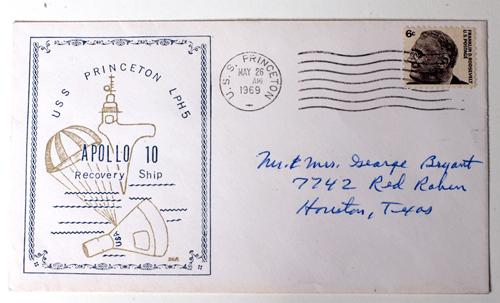 USS PRINCETON LPH5
APOLLO 10
Recovery Ship
USA
U.S.S. PRINCETON
MAY 26
AM
1969
6¢
FRANKLIN D. ROOSEVELT
U.S. POSTAGE
Mr. & Mrs. George Bryant
7742 Red Robin
Houston, Texas